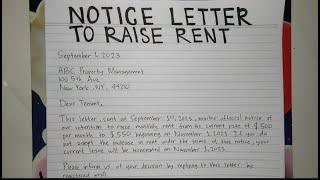 NOTICE LETTER
TO RAISE RENT
September 1, 2023
ABC Property Management
100 5th Ave
New York, NY,
Dear Tenant,
This letter, sent on September 1st, 2023, is official notice of
our intention to raise monthly rent from its current rate of $ 500
per month to $ 550 beginning on November 1, 2023. If you do
not accept the increase in rent under the terms of this notice, your
current lease will be terminated on November 1, 2023.
Please inform us of your decision by replying to this letter by
registered mail.